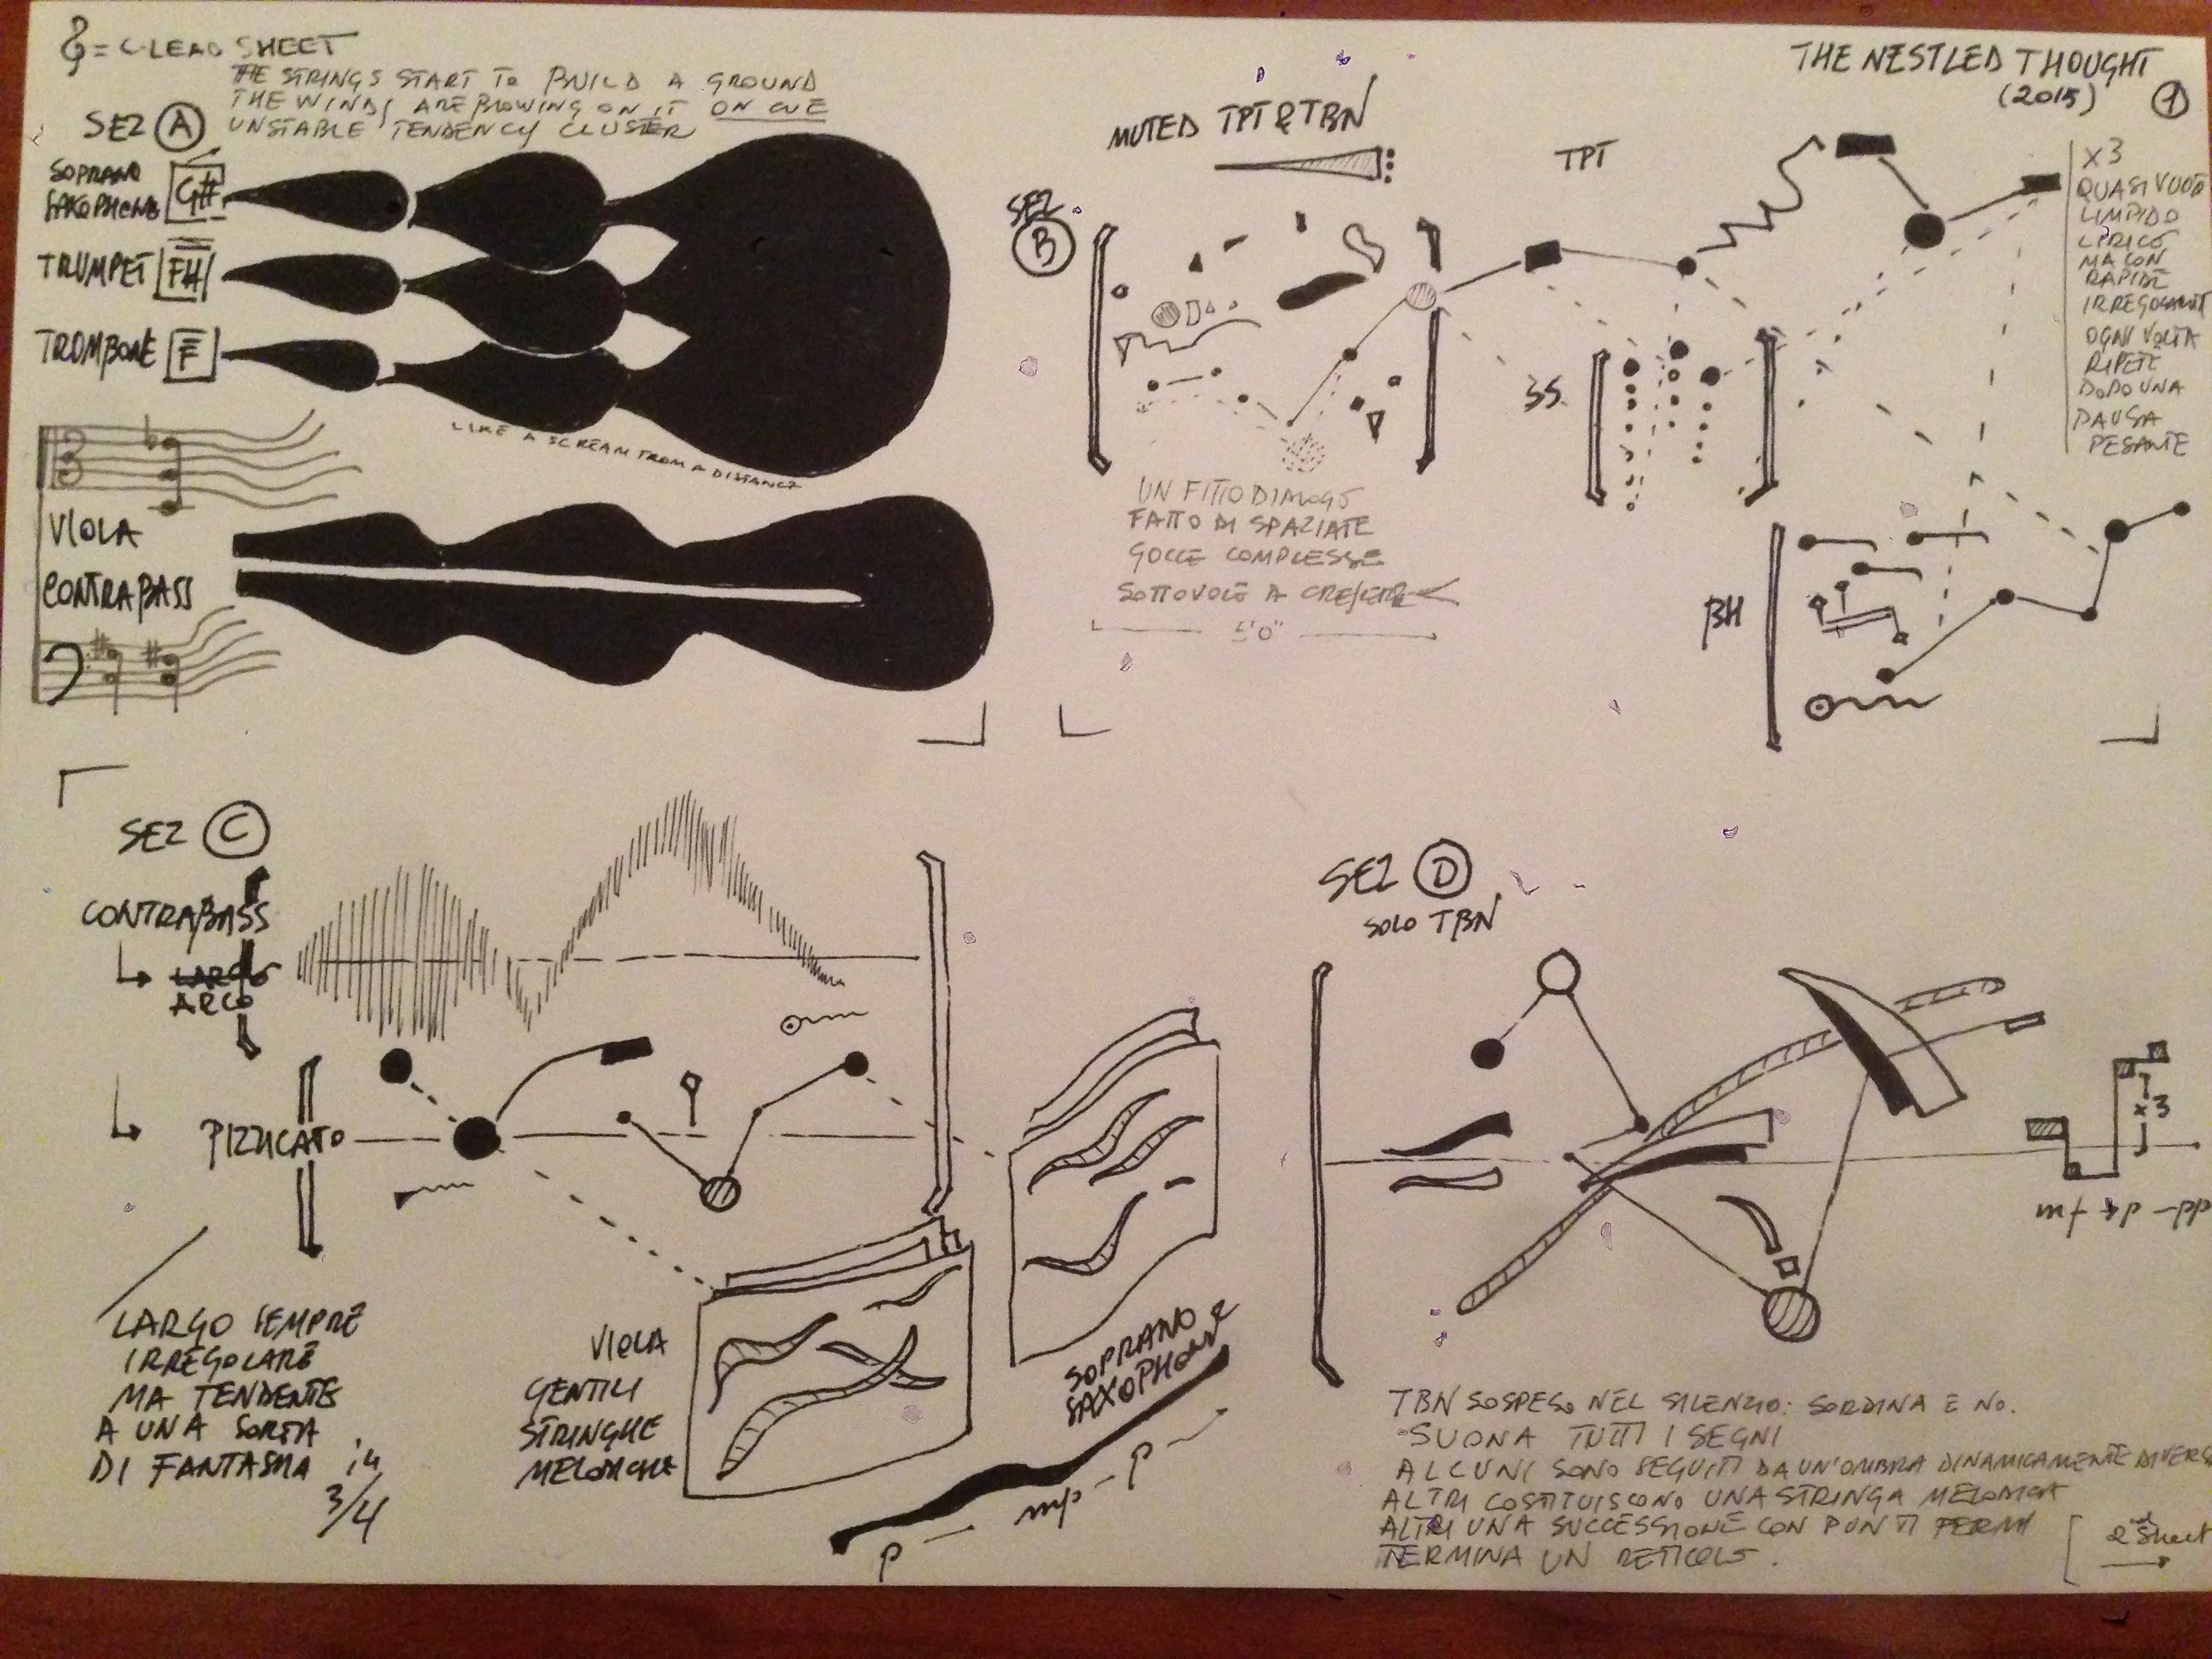 = C-LEAD SHEET
THE STRINGS START TO BUILD A GROUND
THE WINDS ARE BLOWING ON IT ON CUE
UNSTABLE TENDENCY CLUSTER
SEZ A
SOPRANO
SAXOPHONE G#
TRUMPET
TROMBONE F
LIKE A SCREAM FROM A DISTANCE
VIOLA
CONTRABASS
THE NESTLED THOUGHT
(2015) 1
MUTED TPT & TBN
SEZ
B
TPT
SS
BH
X3
QUASI VUOTO
LIMPIDO
LIRICO
MA CON
RAPIDE
OGNI VOLTA
RIPETE
DOPO UNA
PAUSA
PESANTE
UN FITTO DIALOGO
FATTO DI SPAZIATE
GOCCE COMPLESSE
SOTTOVOCE A CRESCERE
5'0"
SEZ C
CONTRABASS
LARGO
ARCO
PIZZICATO
LARGO SEMPRE
IRREGOLARE
MA TENDENTE
A UNA SORTA
DI FANTASMA in
3/4
VIOLA
GENTILI
STRINGHE
MELODICHE
SOPRANO
SAXOPHONE
p mp p
SEZ D
SOLO TBN
x3
mf p pp
TBN SOSPESO NEL SILENZIO: SORDINA E NO.
SUONA TUTTI I SEGNI
ALCUNI SONO SEGUITI DA UN'OMBRA DINAMICAMENTE DIVERSA
ALTRI COSTITUISCONO UNA STRINGA MELODICA
ALTRI UNA SUCCESSIONE CON PUNTI FERMI
TERMINA UN RETICOLO.
2nd Sheet